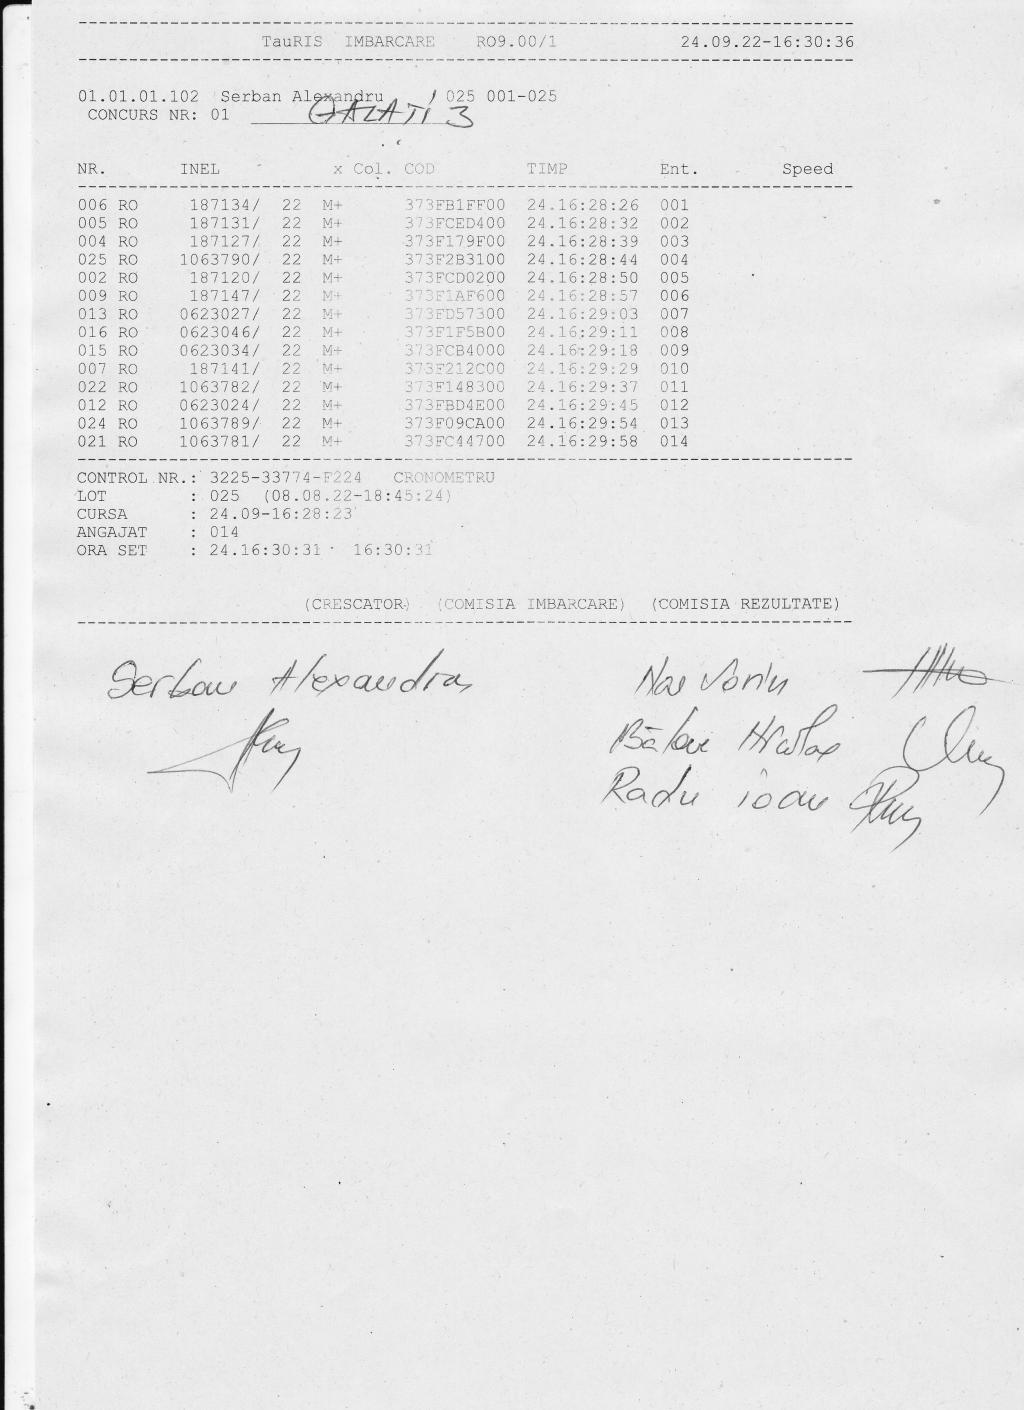 TauRIS IMBARCARE RO9.00/1 24.09.22-16:30:36
01.01.01.102 Serban Alexandru 025 001-025
CONCURS NR: 01 GALATI 3
NR. INEL x Col. COD TIMP Ent. Speed
006 RO 187134/ 22 M+ 373FB1FF00 24.16:28:26 001
005 RO 187131/ 22 M+ 373FCED400 24.16:28:32 002
004 RO 187127/ 22 M+ 373F179F00 24.16:28:39 003
025 RO 1063790/ 22 M+ 373F2B3100 24.16:28:44 004
002 RO 187120/ 22 M+ 373FCD0200 24.16:28:50 005
009 RO 187147/ 22 M+ 373F1AF600 24.16:28:57 006
013 RO 0623027/ 22 M+ 373FD57300 24.16:29:03 007
016 RO 0623046/ 22 M+ 373F1F5B00 24.16:29:11 008
015 RO 0623034/ 22 M+ 373FCB4000 24.16:29:18 009
007 RO 187141/ 22 M+ 373F212C00 24.16:29:29 010
022 RO 1063782/ 22 M+ 373F148300 24.16:29:37 011
012 RO 0623024/ 22 M+ 373FBD4E00 24.16:29:45 012
024 RO 1063789/ 22 M+ 373F09CA00 24.16:29:54 013
021 RO 1063781/ 22 M+ 373FC44700 24.16:29:58 014
CONTROL NR.: 3225-33774-F224 CRONOMETRU
LOT : 025 (08.08.22-18:45:24)
CURSA : 24.09-16:28:23
ANGAJAT : 014
ORA SET : 24.16:30:31 16:30:31
(CRESCATOR) (COMISIA IMBARCARE) (COMISIA REZULTATE)
Serban Alexandru
Radu ioan